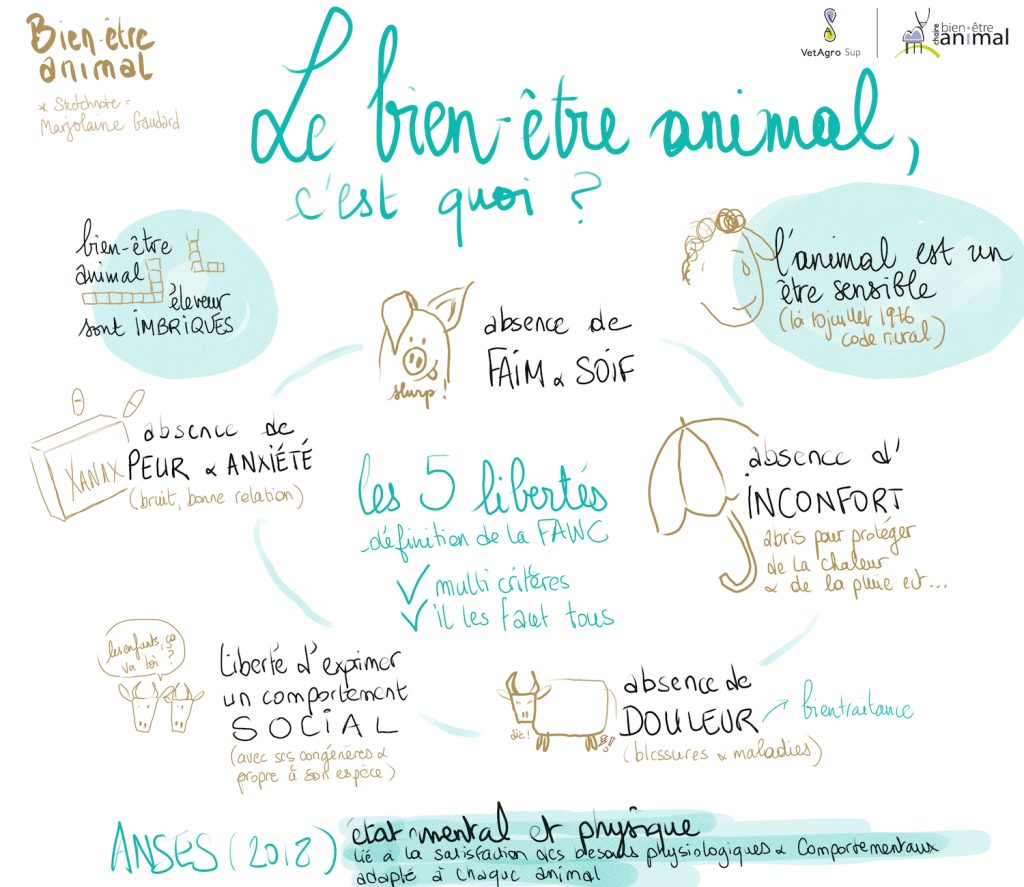 Bien-être
animal
* Sketchnote =
Marjolaine Gaudard
VetAgro Sup
chaire bien-être
animal
Le bien-être animal,
c'est quoi ?
bien-être
animal
éleveur
sont IMBRIQUÉS
l'animal est un
être sensible
(loi 10 juillet 1976
code rural)
slurp!
absence de
FAIM & SOIF
XANAX
absence de
PEUR & ANXIÉTÉ
(bruit, bonne relation)
absence d'
INCONFORT
abris pour protéger
de la chaleur
& de la pluie et...
les 5 libertés
définition de la FAWC
✓ multi critères
✓ il les faut tous
les enfants, ça
va toi ?
liberté d'exprimer
un comportement
SOCIAL
(avec ses congénères &
propre à son espèce)
absence de
DOULEUR → bientraitance
(blessures & maladies)
aïe!
ANSES (2018)
état mental et physique
lié à la satisfaction des besoins physiologiques & comportementaux
adapté à chaque animal